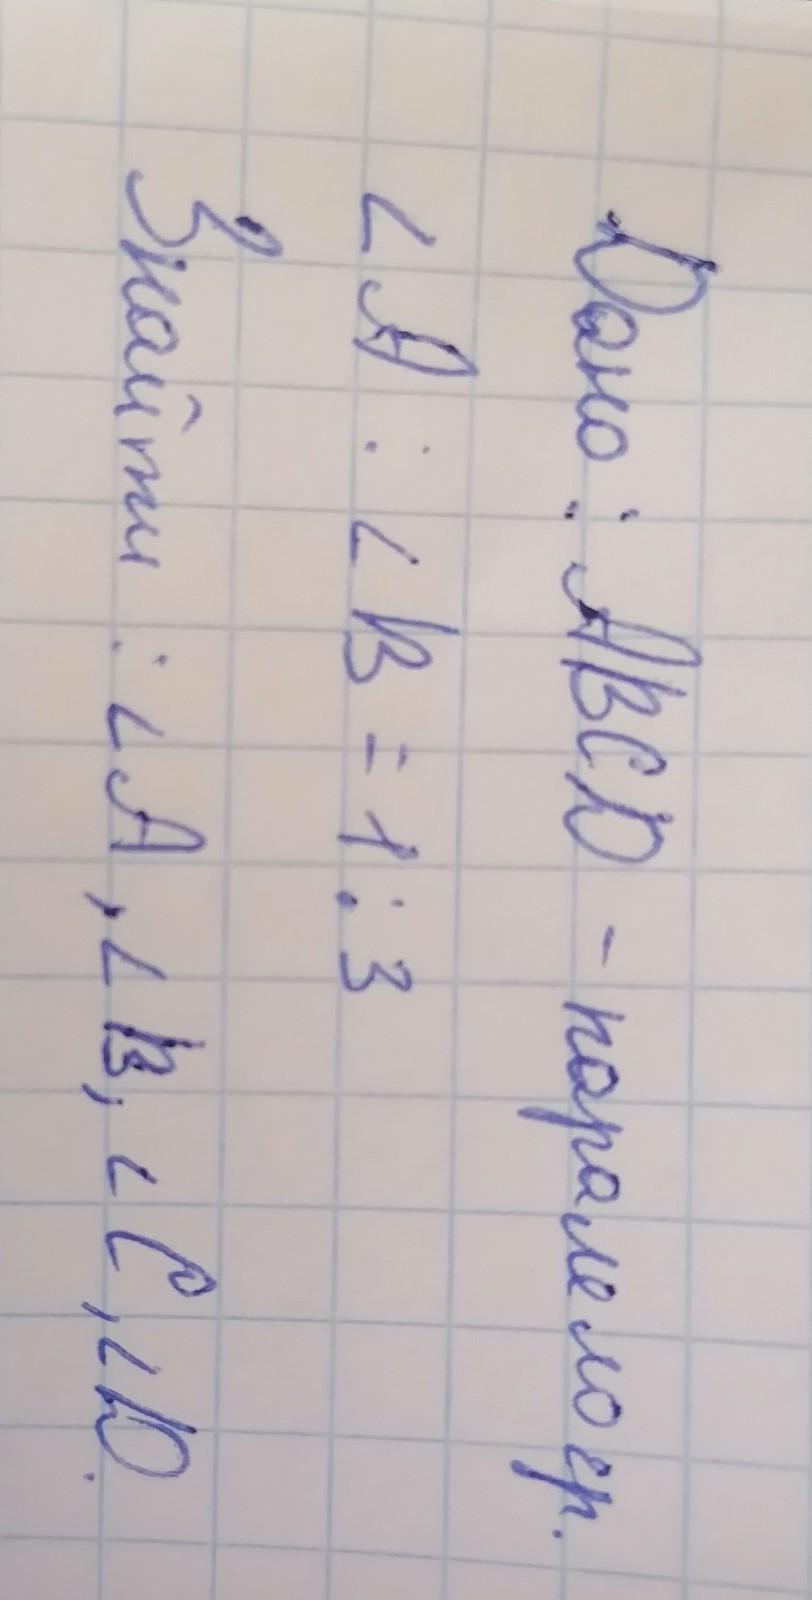 Дано: ABCD - паралелогр.
∠A : ∠B = 1 : 3
Знайти : ∠A, ∠B, ∠C, ∠D.